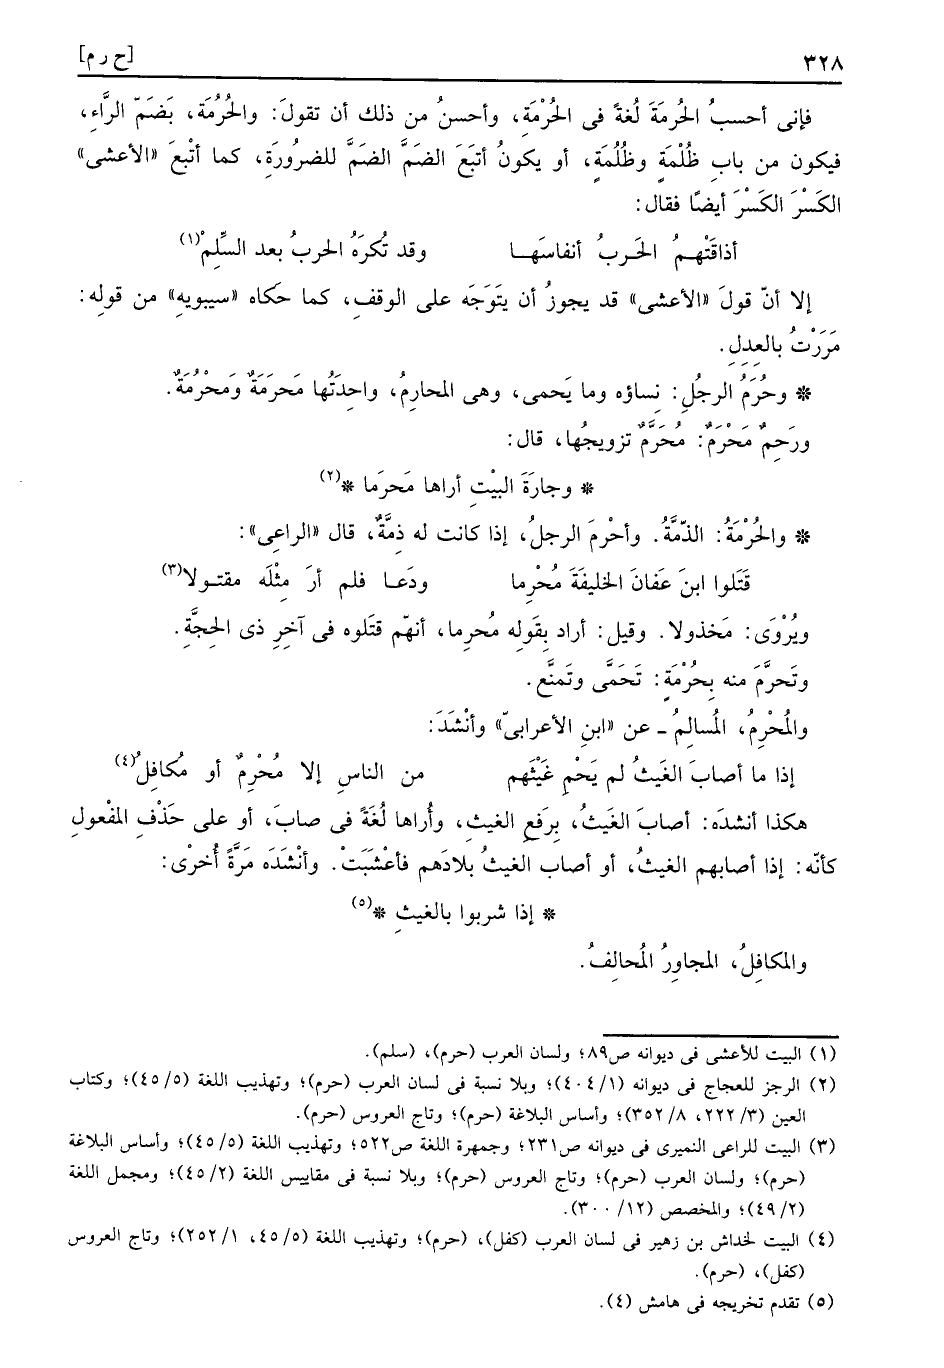 ٣٢٨ [ح ر م]
فإنى أحسبُ الحُرمَةَ لُغةً فى الحُرْمَةِ، وأحسنُ من ذلك أن تقولَ: والحُرُمَة، بَضَمّ الرَّاءِ،
فيكون من بابِ ظُلْمَةٍ وظُلُمَةٍ، أو يكونُ أتبَعَ الضَمَّ الضَمَّ للضرُورَةِ، كما أتْبعَ «الأعشى»
الكَسْرَ الكَسْرَ أيضًا فقال:
أذاقَتْهمُ الحَربُ أنفاسَها وقد تُكرَهُ الحربُ بعد السِّلِمْ(١)
إلا أنّ قولَ «الأعشى» قد يجوزُ أن يتَوَجَه على الوقفِ، كما حَكاه «سيبويهِ» من قولِه:
مَرَرْتُ بالعِدِلِ.
* وحُرَمُ الرجُلِ: نِساؤه وما يَحمى، وهى المحارِمُ، واحِدَتُها مَحرَمَةٌ ومَحْرُمَةٌ.
ورَحِمٌ مَحْرَمٌ: مُحَرَّمٌ تزويجُها، قال:
* وجارَةَ البيْتِ أراها مَحرَما *(٢)
* والحُرْمَةُ: الذّمَّةُ. وأحْرمَ الرجلُ، إذا كانت له ذِمَّةٌ، قال «الراعِى»:
قَتَلوا ابنَ عَفانَ الخليفَةَ مُحْرِما ودَعا فلم أرَ مِثْلَه مقتولا(٣)
ويُرْوَى: مَخذولا. وقيل: أراد بِقَولِه مُحرِما، أنهّم قتَلوه فى آخِرِ ذى الحِجَّةِ.
وتَحرَّمَ منه بِحُرْمَةٍ: تَحَمَّى وتَمنَّع.
والمُحْرِمُ، المُسالِمُ ـ عن «ابنِ الأعرابىّ» وأنْشَدَ:
إذا ما أصابَ الغَيثُ لم يَحْمِ غَيْثَهم من الناسِ إلا مُحْرِمٌ أو مُكافِلُ(٤)
هكذا أنشدَه: أصابَ الغَيثُ، بِرَفعِ الغيثِ، وأُراها لُغَةً فى صابَ، أو على حَذْفِ المفْعولِ
كأنّه: إذا أصابهم الغيثُ، أو أصاب الغيثُ بلادَهم فأعْشَبَتْ. وأنْشَدَه مَرَّةً أُخرْى:
* إذا شربوا بالغيثِ *(٥)
والمكافِلُ، المجاوِرُ المُحالِفُ.
(١) البيت للأعشى فى ديوانه ص٨٩؛ ولسان العرب (حرم)، (سلم).
(٢) الرجز للعجاج فى ديوانه (١/ ٤٠٤)؛ وبلا نسبة فى لسان العرب (حرم)؛ وتهذيب اللغة (٥/ ٤٥)؛ وكتاب
العين (٣/ ٢٢٢، ٨/ ٣٥٢)؛ وأساس البلاغة (حرم)؛ وتاج العروس (حرم).
(٣) البيت للراعى النميرى فى ديوانه ص٢٣١؛ وجمهرة اللغة ص٥٢٢؛ وتهذيب اللغة (٥/ ٤٥)؛ وأساس البلاغة
(حرم)؛ ولسان العرب (حرم)؛ وتاج العروس (حرم)؛ وبلا نسبة فى مقاييس اللغة (٢/ ٤٥)؛ ومجمل اللغة
(٢/ ٤٩)؛ والمخصص (١٢/ ٣٠٠).
(٤) البيت لخداش بن زهير فى لسان العرب (كفل)، (حرم)؛ وتهذيب اللغة (٥/ ٤٥، ١/ ٢٥٢)؛ وتاج العروس
(كفل)، (حرم).
(٥) تقدم تخريجه فى هامش (٤).